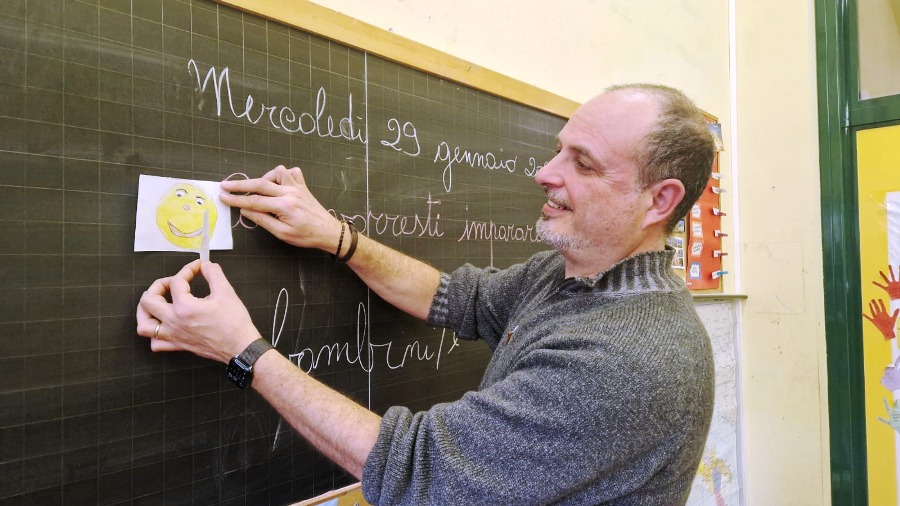 Mercoledì 29 gennaio 20
vorresti imparare
bambini/e